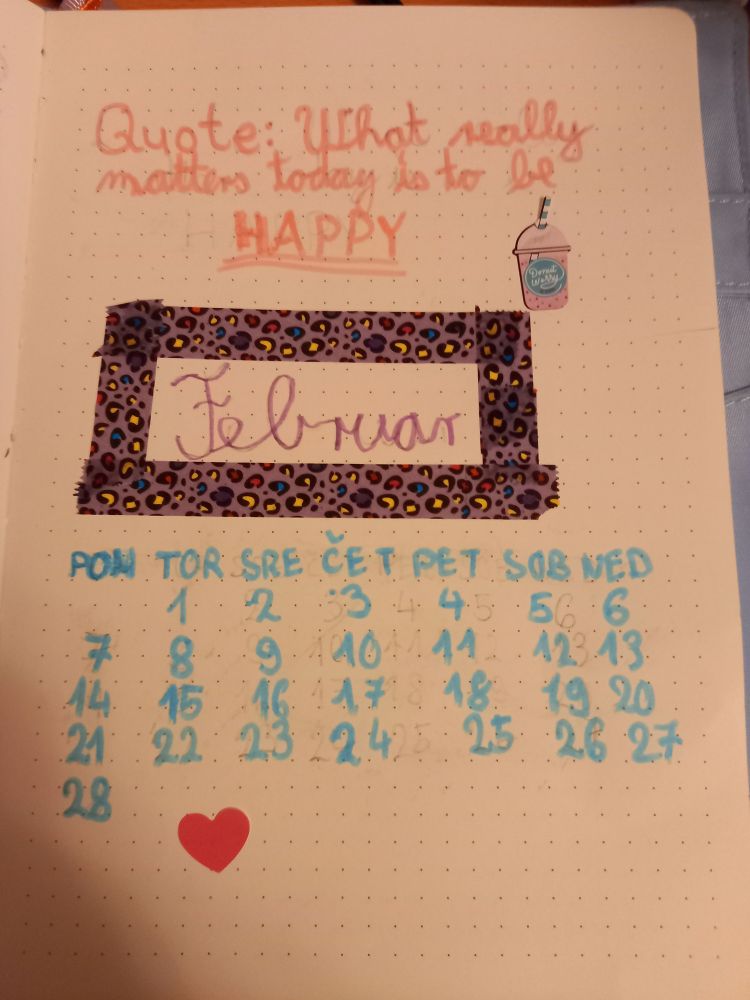 Quote: What really
matters today is to be
HAPPY
Donut
Worry
Februar
PON TOR SRE ČET PET SOB NED
1 2 3 4 5 6
7 8 9 10 11 12 13
14 15 16 17 18 19 20
21 22 23 24 25 26 27
28